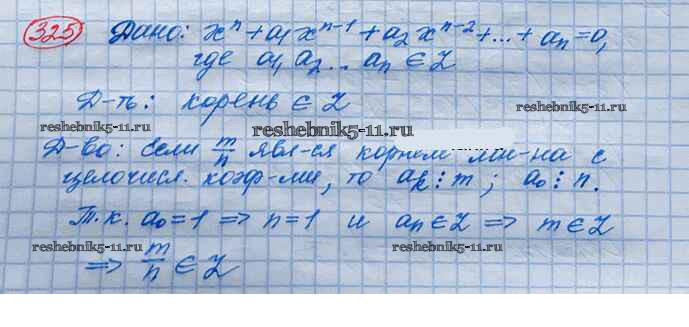 325 Дано: xⁿ + a₁ xⁿ⁻¹ + a₂ xⁿ⁻² + ... + aₙ = 0,
где a₁, a₂ ... aₙ ∈ Z
Д-ть: корень ∈ Z
reshebnik5-11.ru
reshebnik5-11.ru
reshebnik5-11.ru
Д-во: Если m/n явл-ся корнем мн-на с
целочисл. коэф-ми, то aₖ ⋮ m ; a₀ ⋮ n.
Т.к. a₀ = 1 ⇒ n = 1 и aₙ ∈ Z ⇒ m ∈ Z
reshebnik5-11.ru
reshebnik5-11.ru
reshebnik5-11.ru
⇒ m/n ∈ Z